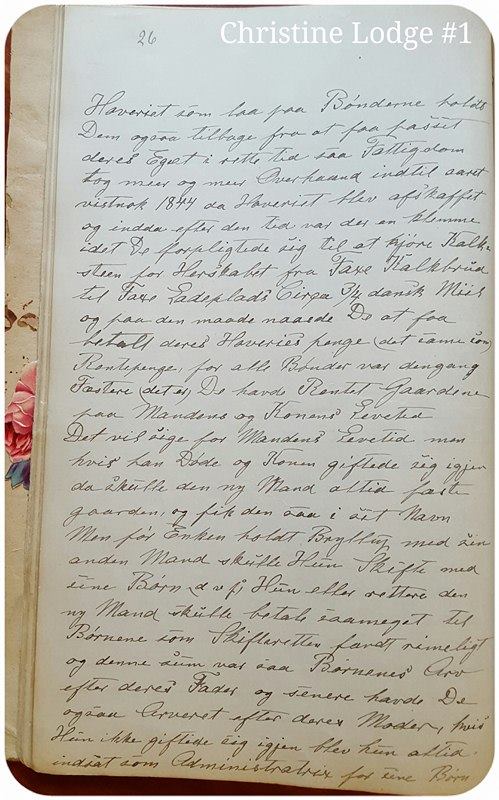 26
Christine Lodge #1
Hoveriet som laa paa Bønderne holdt
Dem ogsaa tilbage fra at faa passet
deres Eget i rette tid saa Fattigdom
tog meer og meer Overhaand indtil aaret
vistnok 1844 da Hoveriet blev afskaffet
og endda efter den tid var der en klemme
idet De forpligtede sig til at kjöre Kalk-
steen for Herskabet fra Faxe Kalkbrud
til Faxe Ladeplads Circa 3/4 dansk Miil
og paa den maade naaede De at faa
betalt deres Hoveries penge (det same som)
Rentepenge, for alle Bønder var dengang
Fæstere (det er) De havde Rentet Gaardene
paa Mandens og Konens Levetid
Det vil sige for Mandens Levetid men
hvis han Døde og Konen giftede sig igjen
da skulle den ny Mand altid fæste
gaarden, og fik den saa i sit Navn
Men för Enken holdt Bryllup med sin
anden Mand skulle Hun Skifte med
sine Børn, d v s, Hun eller rettere den
ny Mand skulle betale saameget til
Børnene som Skifteretten fandt rimeligt
og denne sum var saa Børnenes Arv
efter deres Fader og senere havde De
ogsaa Arveret efter deres Moder, hvis
Hun ikke giftede sig igjen blev hun altid
indsat som Administratrix for sine Børn